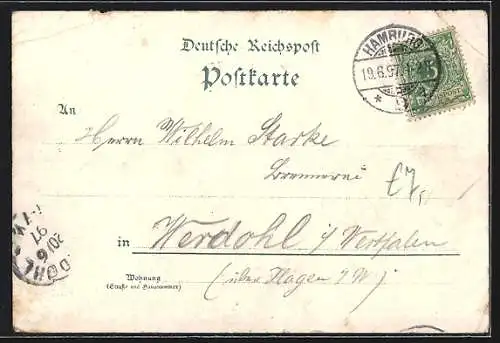 Deutsche Reichspost
Postkarte
HAMBURG
19.6.97.
5
An
Herrn Wilhelm Starke
Brennerei
£7,
in Werdohl i/ Westfalen
Wohnung
(Straße und Hausnummer)
(über Hagen i/W)
20/6
97